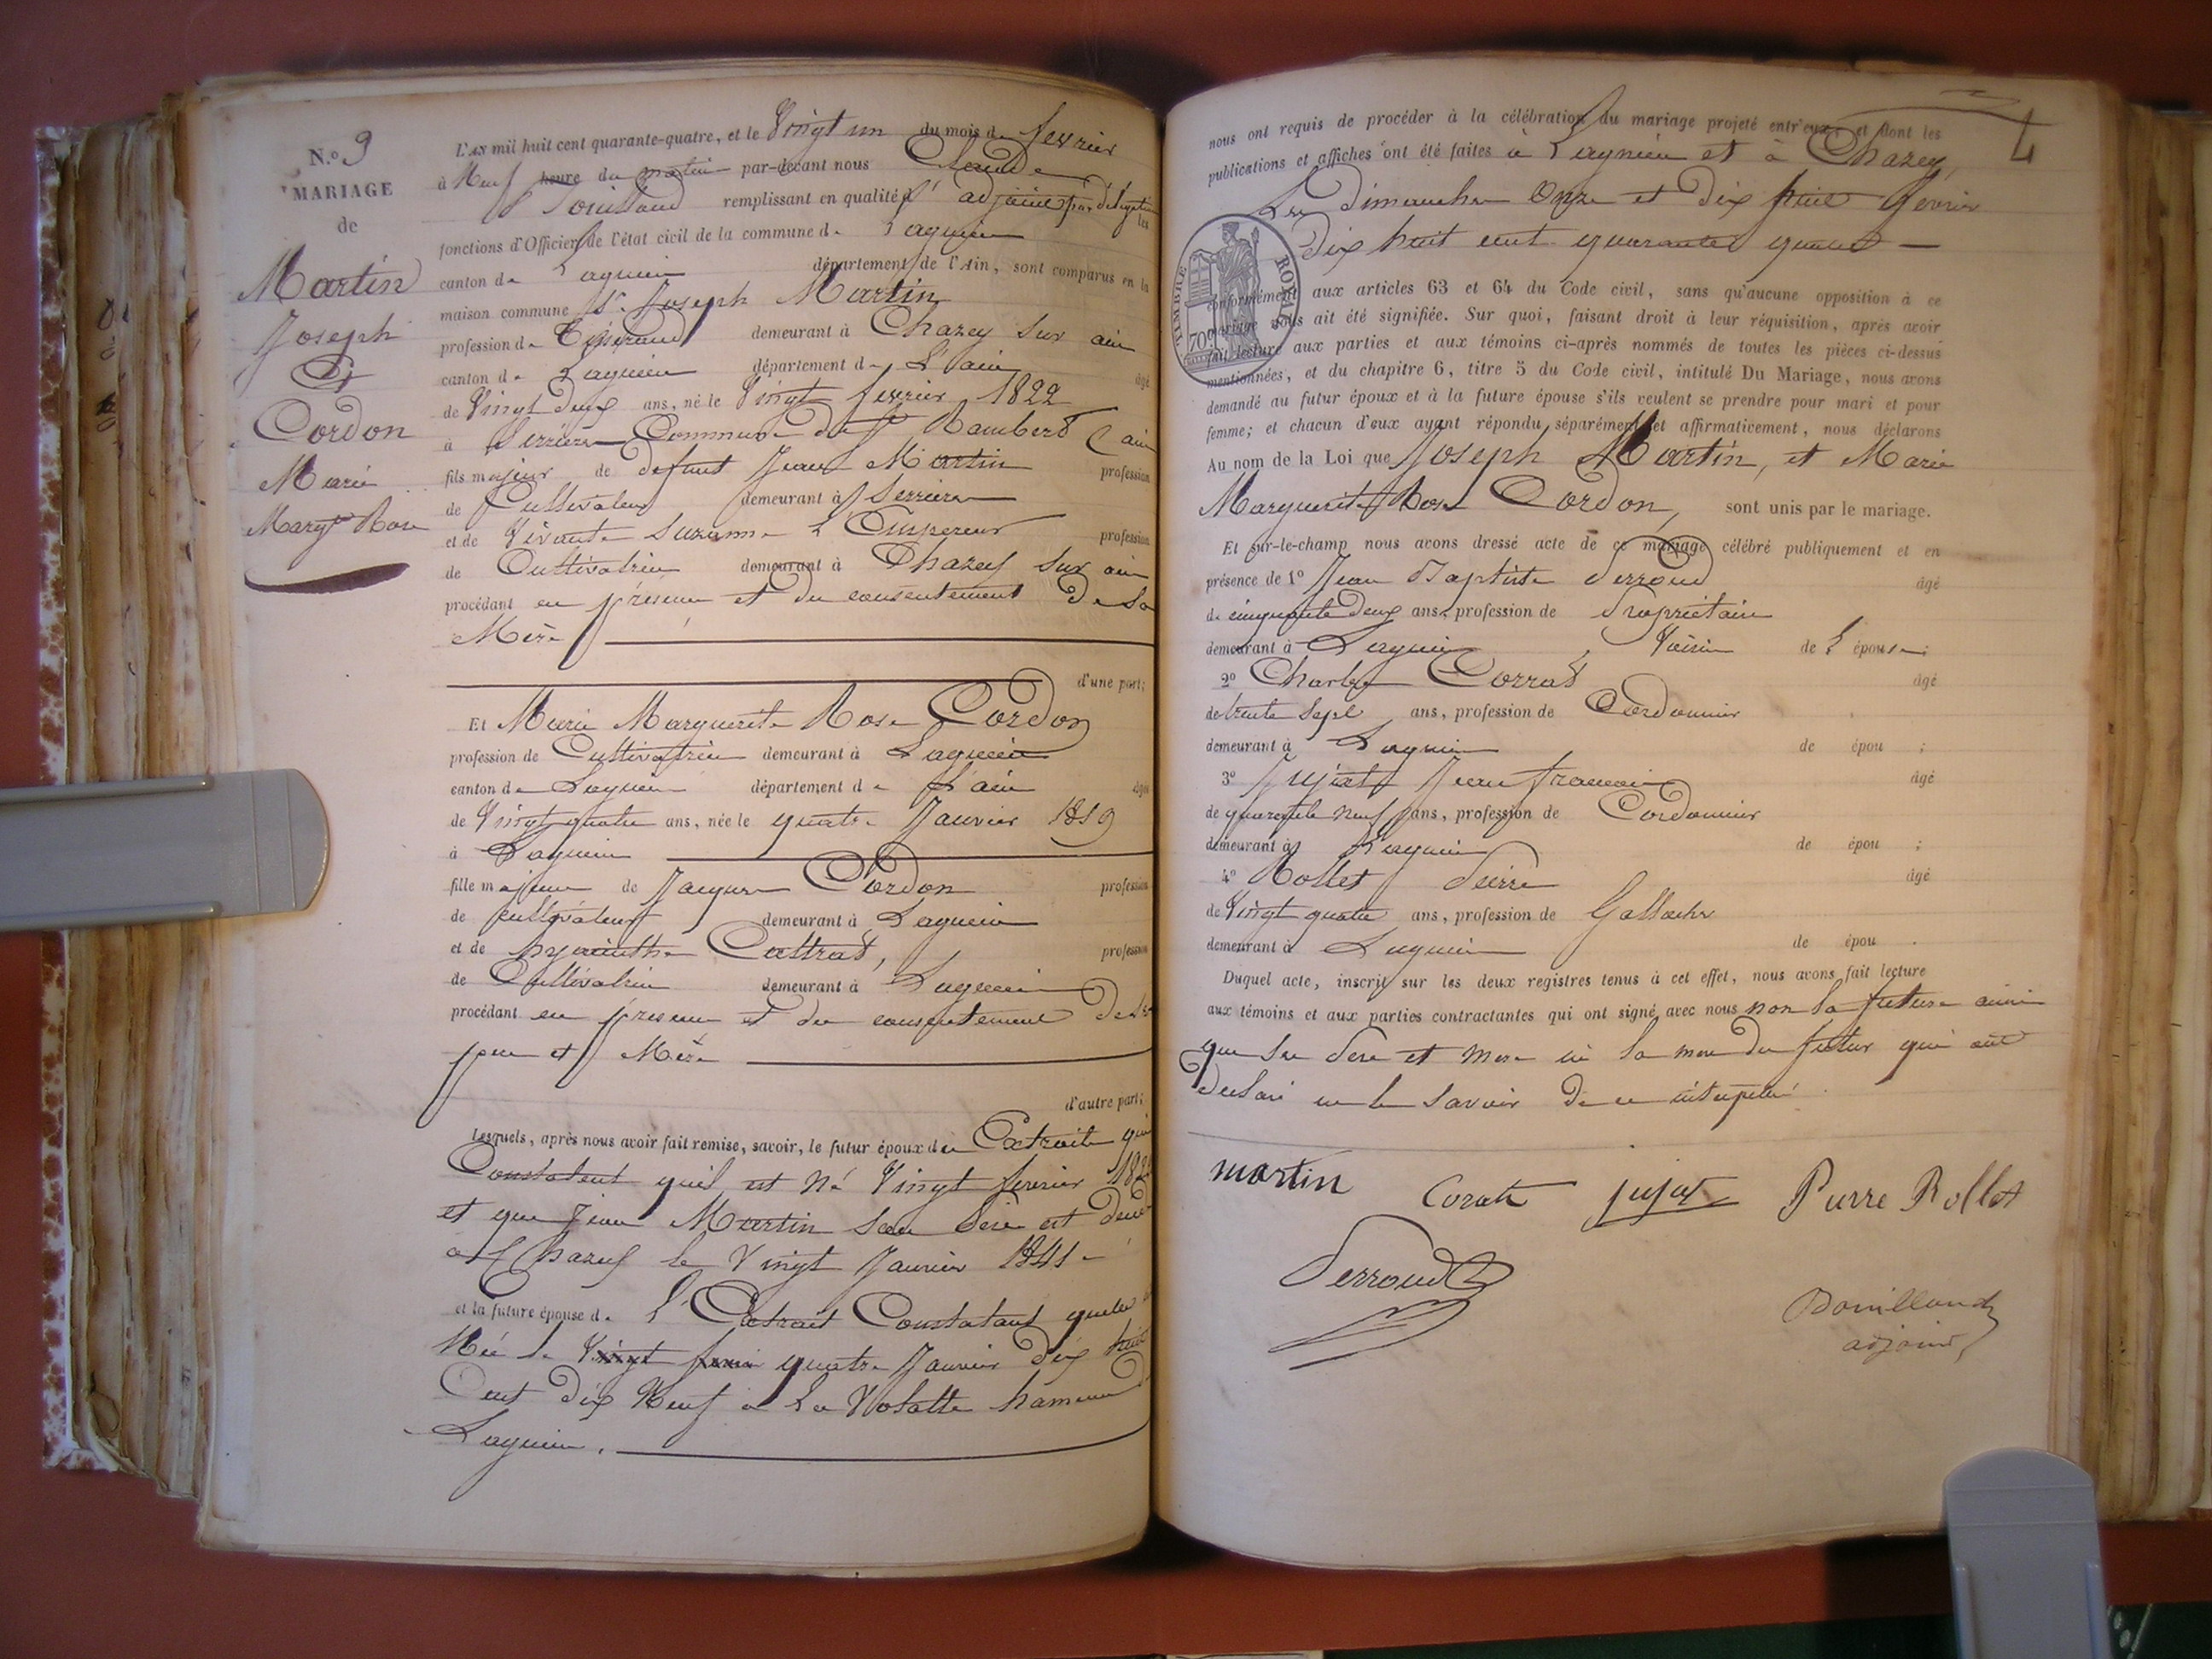 N.º 9
MARIAGE
de
Martin
Joseph
Et
Cordon
Marie
Margte Rose
L'AN mil huit cent quarante-quatre, et le Vingt un du mois de fevrier
à Neuf heure du matin par-devant nous Claude
remplissant en qualité d' adjoint par délégation les
fonctions d'Officier de l'état civil de la commune de Lagnieu
canton de Lagnieu département de l'Ain, sont comparus en la
maison commune Sr Joseph Martin
profession de Tisserand demeurant à Chazey sur ain
canton de Lagnieu département de L'ain âgé
de Vingt deux ans, né le Vingt fevrier 1822
à Serrières Commune de St Rambert (ain
fils majeur de defunt Jean Martin profession
de Cultivateur demeurant à Serrières
et de Vivante Suzanne L'Empereur profession
de Cultivatrice demeurant à Chazey sur ain
procédant en présence et du consentement De sa
Mère
d'une part;
Et Marie Marguerite Rose Cordon
profession de Cultivatrice demeurant à Lagnieu
canton de Lagnieu département de L'ain âgée
de Vingt quatre ans, née le quatre Janvier 1819
à Lagnieu
fille majeure de Jacques Cordon profession
de cultivateur demeurant à Lagnieu
et de hyacinthe profession
de Cultivatrice demeurant à Lagnieu
procédant en présence et du consentement De ses
père et Mère
d'autre part;
Lesquels, après nous avoir fait remise, savoir, le futur époux des Extraits qui
Constatent quil est Né Vingt fevrier 1822
et que Jean Martin son Père est décédé
à Chazey le Vingt Janvier 1841
et la future épouse de L'Extrait Constatant quelle est
Née le Vingt fevrier quatre Janvier dix huit
Cent dix Neuf à La hameau de
Lagnieu.
4
nous ont requis de procéder à la célébration du mariage projeté entr'eux, et dont les
publications et affiches ont été faites à Lagnieu et à Chazey,
Les dimanches Onze et Dix huit fevrier
Dix huit cent quarante quatre
TIMBRE ROYAL
70c
conformément aux articles 63 et 64 du Code civil, sans qu'aucune opposition à ce
mariage nous ait été signifiée. Sur quoi, faisant droit à leur réquisition, après avoir
fait lecture aux parties et aux témoins ci-après nommés de toutes les pièces ci-dessus
mentionnées, et du chapitre 6, titre 5 du Code civil, intitulé Du Mariage, nous avons
demandé au futur époux et à la future épouse s'ils veulent se prendre pour mari et pour
femme; et chacun d'eux ayant répondu séparément et affirmativement, nous déclarons
Au nom de la Loi que Joseph Martin, et Marie
Marguerite Rose Cordon, sont unis par le mariage.
Et sur-le-champ nous avons dressé acte de ce mariage célébré publiquement et en
présence de 1º Jean Baptiste Perroud âgé
de cinquante deux ans, profession de Propriétaire
demeurant à Lagnieu Voisin de L'épouse;
2º Charles Corrat âgé
de trente sept ans, profession de Cordonnier
demeurant à Lagnieu de épou ;
3º Jujat Jean françois âgé
de quarante neuf ans, profession de Cordonnier
demeurant à Lagnieu de épou ;
4º Rollet Pierre âgé
de Vingt quatre ans, profession de
demeurant à Lagnieu de épou .
Duquel acte, inscrit sur les deux registres tenus à cet effet, nous avons fait lecture
aux témoins et aux parties contractantes qui ont signé avec nous non la future ainsi
que ses Père et Mère ni la mère du futur qui ont
Déclaré ne le savoir De ce interpellé
martin
Corat
jujat
Pierre Rollet
Perroud
Bouilloud
adjoint